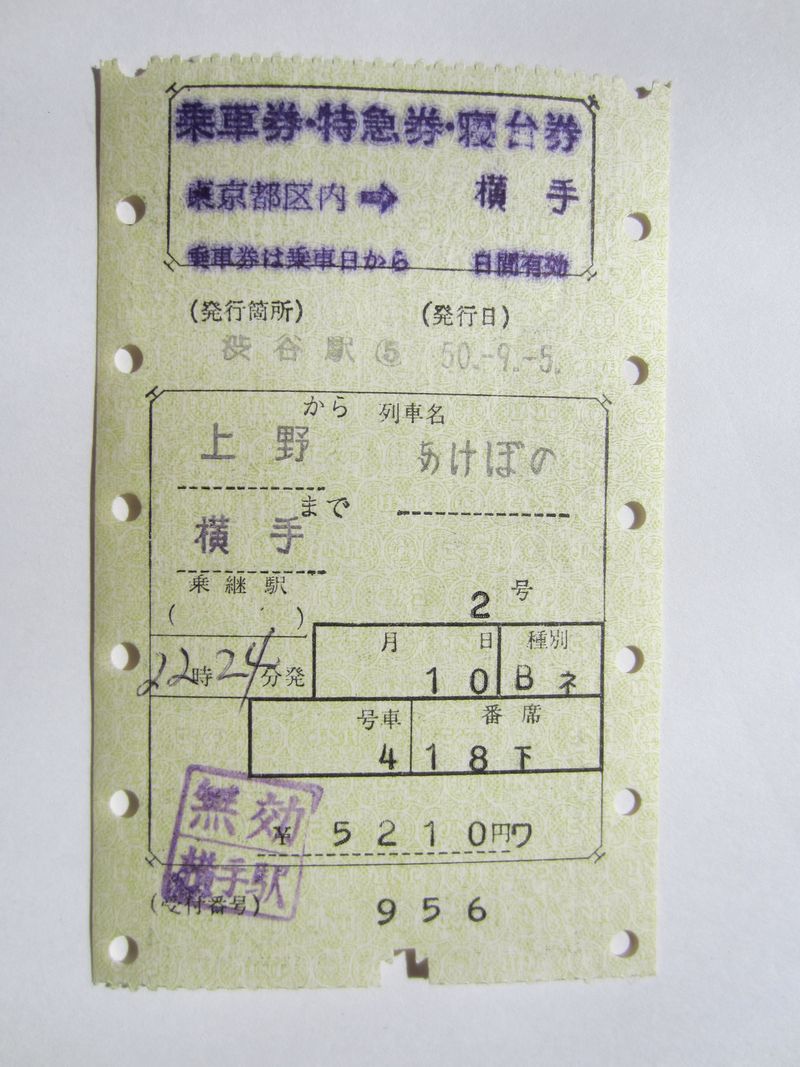 乗車券・特急券・寝台券
東京都区内 ➡ 横手
乗車券は乗車日から 日間有効
(発行箇所) (発行日)
渋谷駅⑤ 50.-9.-5.
から 列車名
上野 あけぼの
まで
横手
乗継駅
( ) 2号
月 日 種別
22時24分発 10 Bネ
号車 番席
4 18下
無効
¥5210円ワ
横手駅
(受付番号) 956